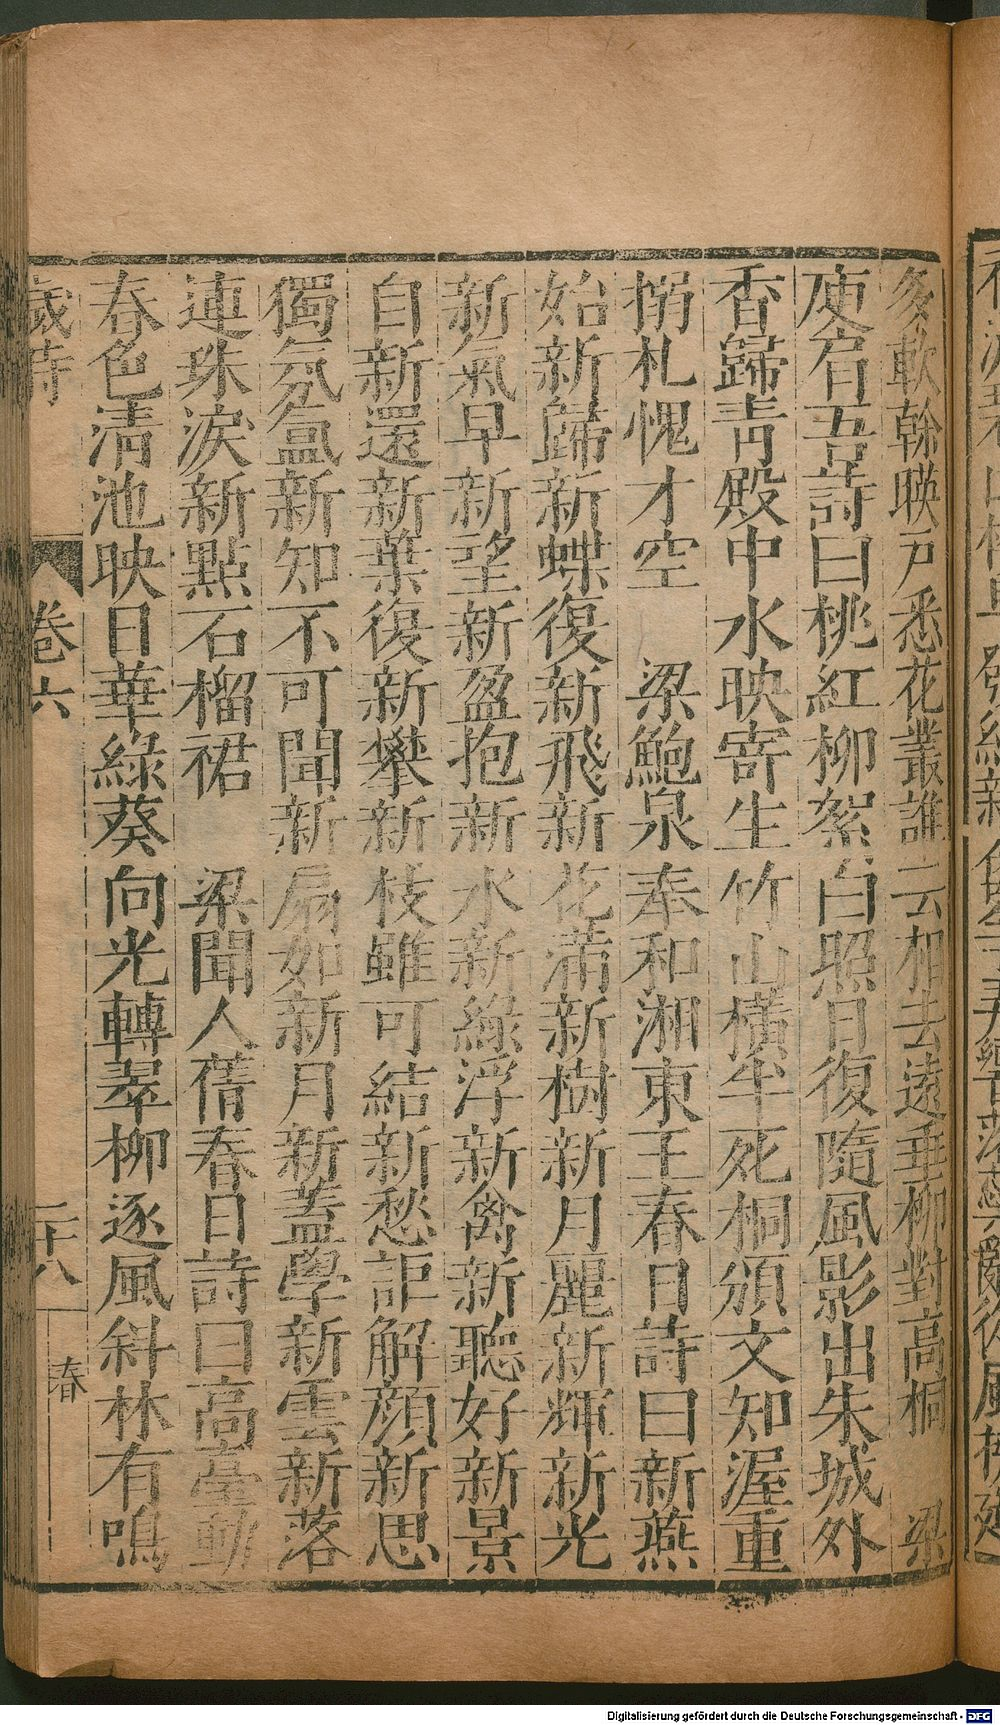 多軟幹暎戸悉花叢誰云相去遠垂柳對高桐　梁
庾肩吾詩曰桃紅柳絮白照日復隨風影出朱城外
香歸靑殿中水映寄生竹山橫半死桐頒文知渥重
搦札愧才空　梁鮑泉奉和湘東王春日詩曰新燕
始新歸新蝶復新飛新花滿新樹新月麗新輝新光
新氣早新望新盈抱新水新綠浮新禽新聽好新景
自新還新葉復新攀新枝雖可結新愁詎解顏新思
獨氛氳新知不可聞新扇如新月新蓋學新雲新落
連珠淚新點石榴裙　梁聞人蒨春日詩曰高臺動
春色淸池映日華綠葵向光轉翠柳逐風斜林有鳴
歲時　卷六　二十八　春
Digitalisierung gefördert durch die Deutsche Forschungsgemeinschaft - DFG